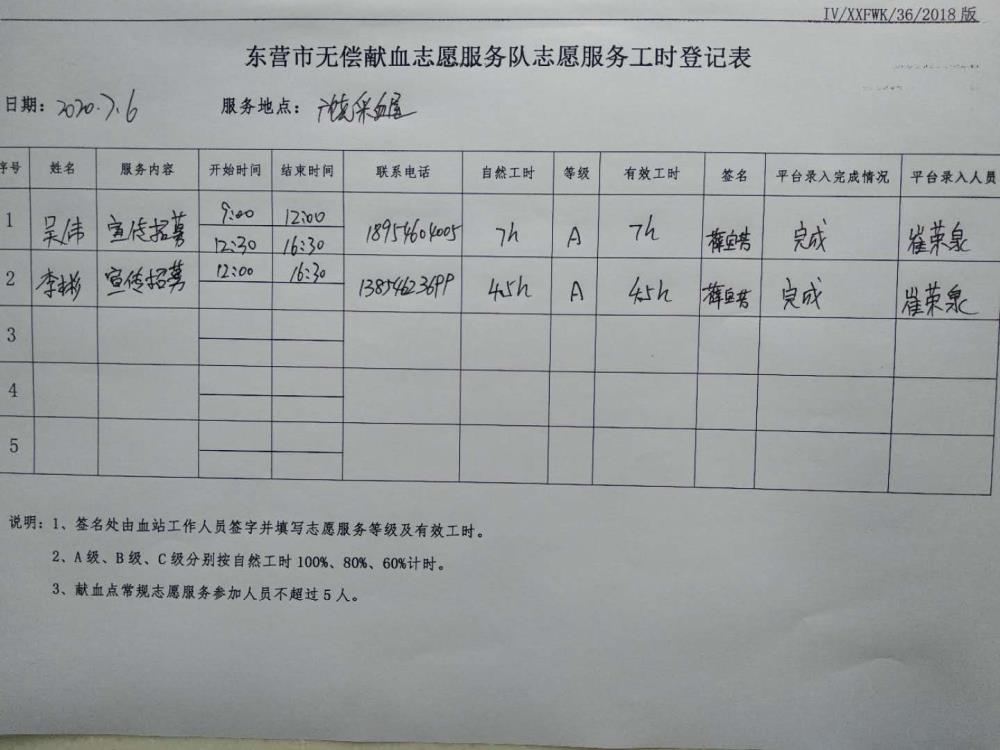 IV/XXFWK/36/2018版
东营市无偿献血志愿服务队志愿服务工时登记表
日期：2020.7.6 服务地点：广饶采血屋
序号 姓名 服务内容 开始时间 结束时间 联系电话 自然工时 等级 有效工时 签名 平台录入完成情况 平台录入人员
1 吴伟 宣传招募 9:00 12:00 18954604005 7h A 7h 完成 崔荣泉
12:30 16:30
2 李彬 宣传招募 12:00 16:30 13854623699 4.5h A 4.5h 完成 崔荣泉
3
4
5
说明：1、签名处由血站工作人员签字并填写志愿服务等级及有效工时。
2、A级、B级、C级分别按自然工时100%、80%、60%计时。
3、献血点常规志愿服务参加人员不超过5人。